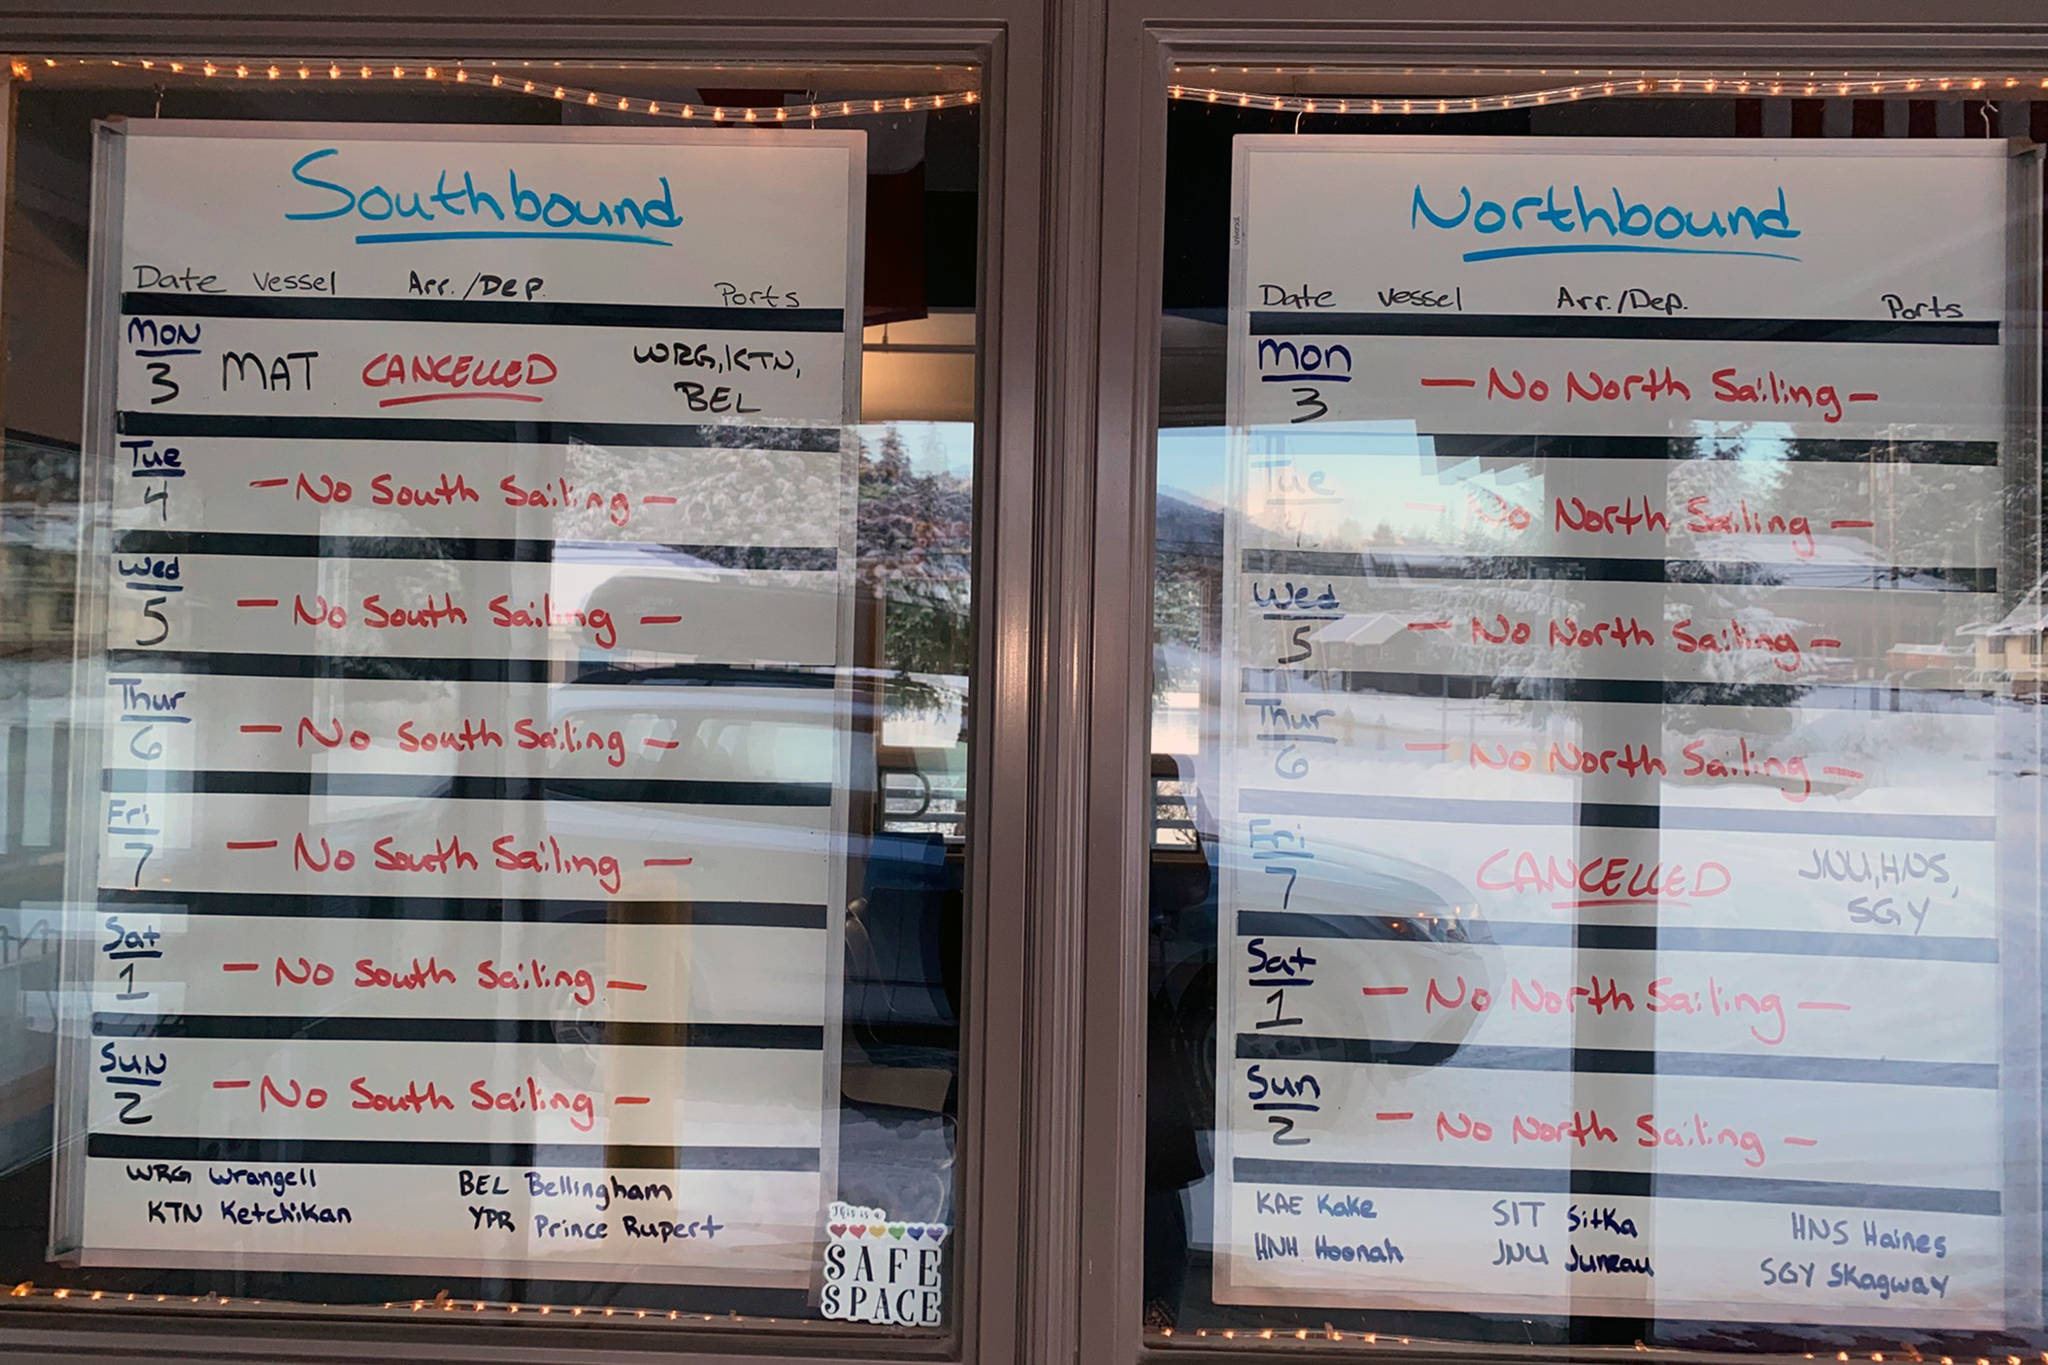 Southbound
Date Vessel Arr./Dep. Ports
Mon 3 MAT CANCELLED WRG, KTN,
BEL
Tue 4 - No South Sailing -
Wed 5 - No South Sailing -
Thur 6 - No South Sailing -
Fri 7 - No South Sailing -
Sat 1 - No South Sailing -
Sun 2 - No South Sailing -
WRG Wrangell BEL Bellingham
KTN Ketchikan YPR Prince Rupert
This is a
SAFE
SPACE
Northbound
Date Vessel Arr./Dep. Ports
Mon 3 - No North Sailing -
Tue 4 - No North Sailing -
Wed 5 - No North Sailing -
Thur 6 - No North Sailing -
Fri 7 CANCELLED JNU, HNS,
SGY
Sat 1 - No North Sailing -
Sun 2 - No North Sailing -
KAE Kake SIT Sitka HNS Haines
HNH Hoonah JNU Juneau SGY Skagway